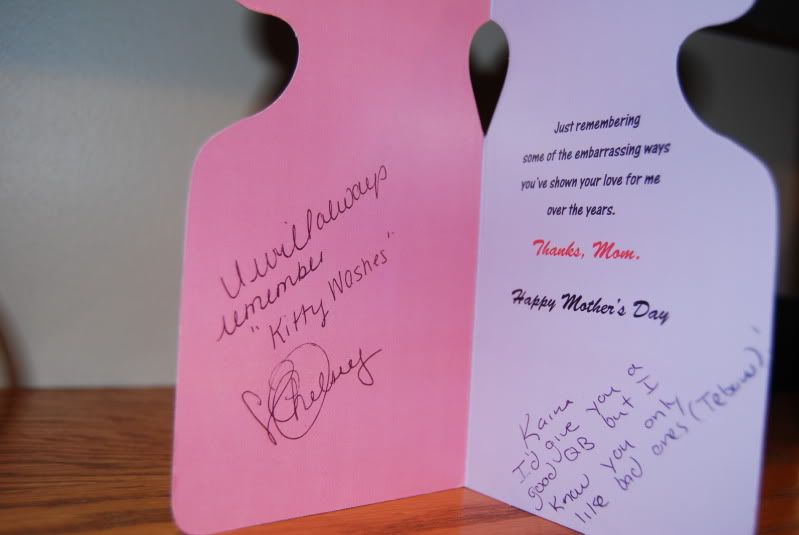 I will always
remember
"Kitty Washes"
Chelsey
Just remembering
some of the embarrassing ways
you've shown your love for me
over the years.
Thanks, Mom.
Happy Mother's Day
I'd give you a
good QB but I
know you only
like bad ones